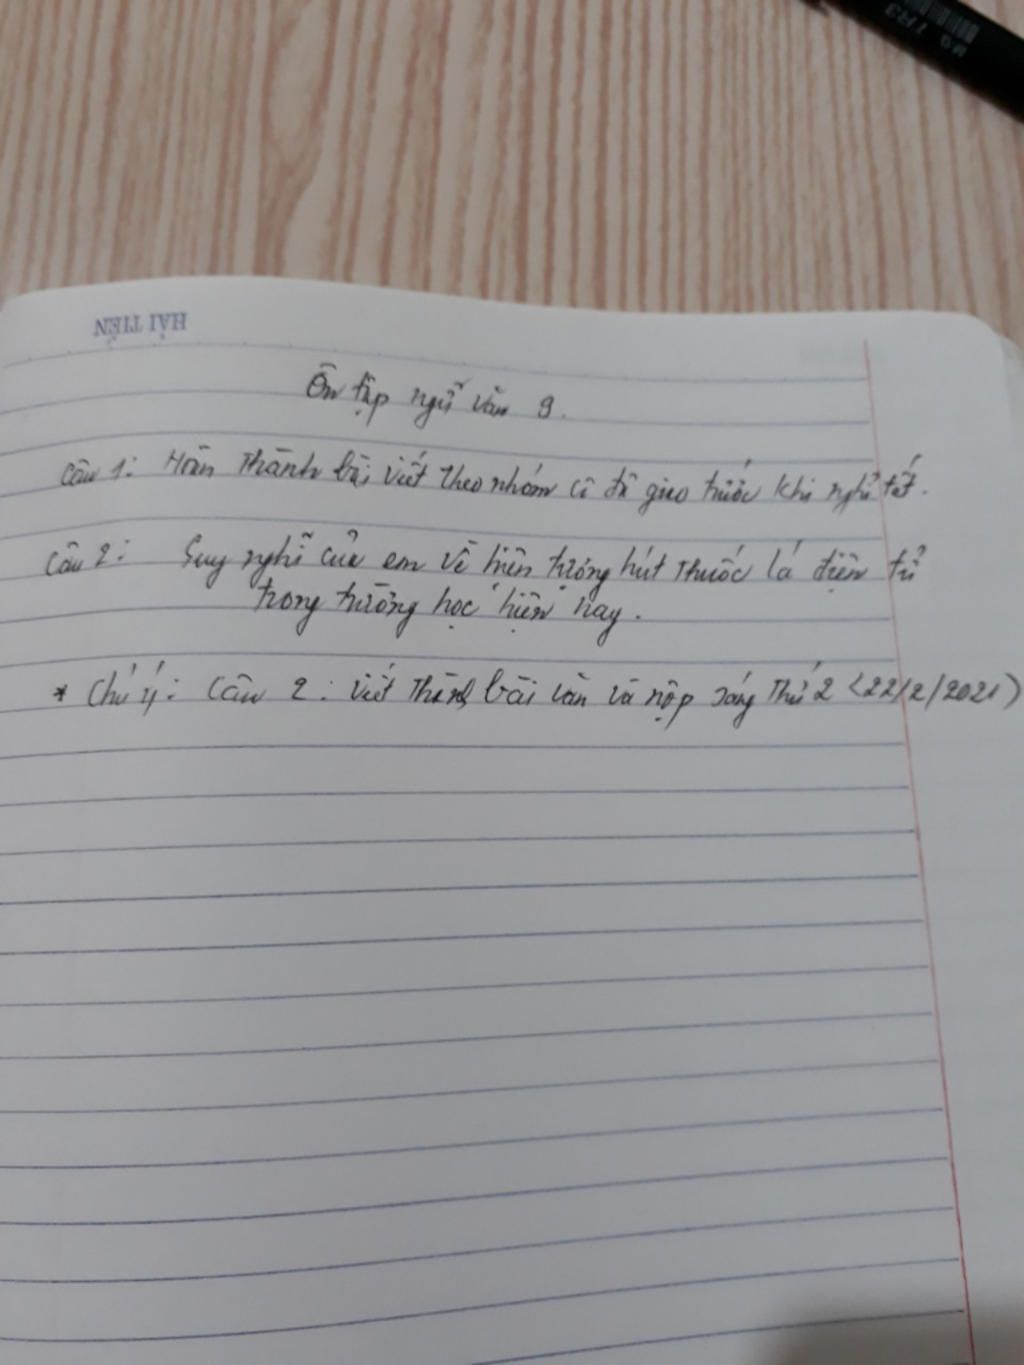 HẢI TIẾN
Ôn tập ngữ văn 9.
Câu 1: Hoàn thành bài viết theo nhóm cô đã giao trước khi nghỉ tết.
Câu 2: Suy nghĩ của em về hiện tượng hút thuốc lá điện tử
trong trường học hiện nay.
* Chú ý: Câu 2: viết thành bài văn và nộp sáng thứ 2 (22/2/2021)